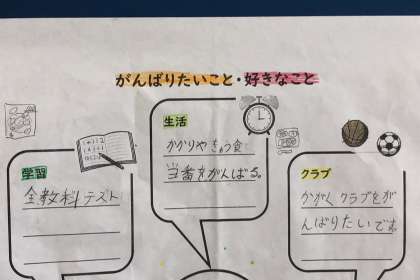 がんばりたいこと・好きなこと
生活
かかりやきゅう食
当番をがんばる。
学習
全教科テスト
クラブ
かがくクラブをが
んばりたいです